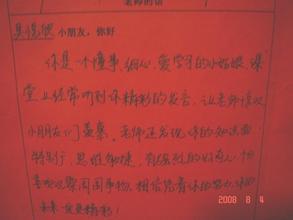 老师的话
小朋友，你好
你是一个懂事、细心、爱学习的小姑娘，课
堂上经常听到你精彩的发言，让老师喜欢
小朋友们羡慕。老师还发现你的知识面
特别广，思维敏捷，
观察周围事物，相信凭着你的努力，你的
未来一定更精彩！
2008 8 4